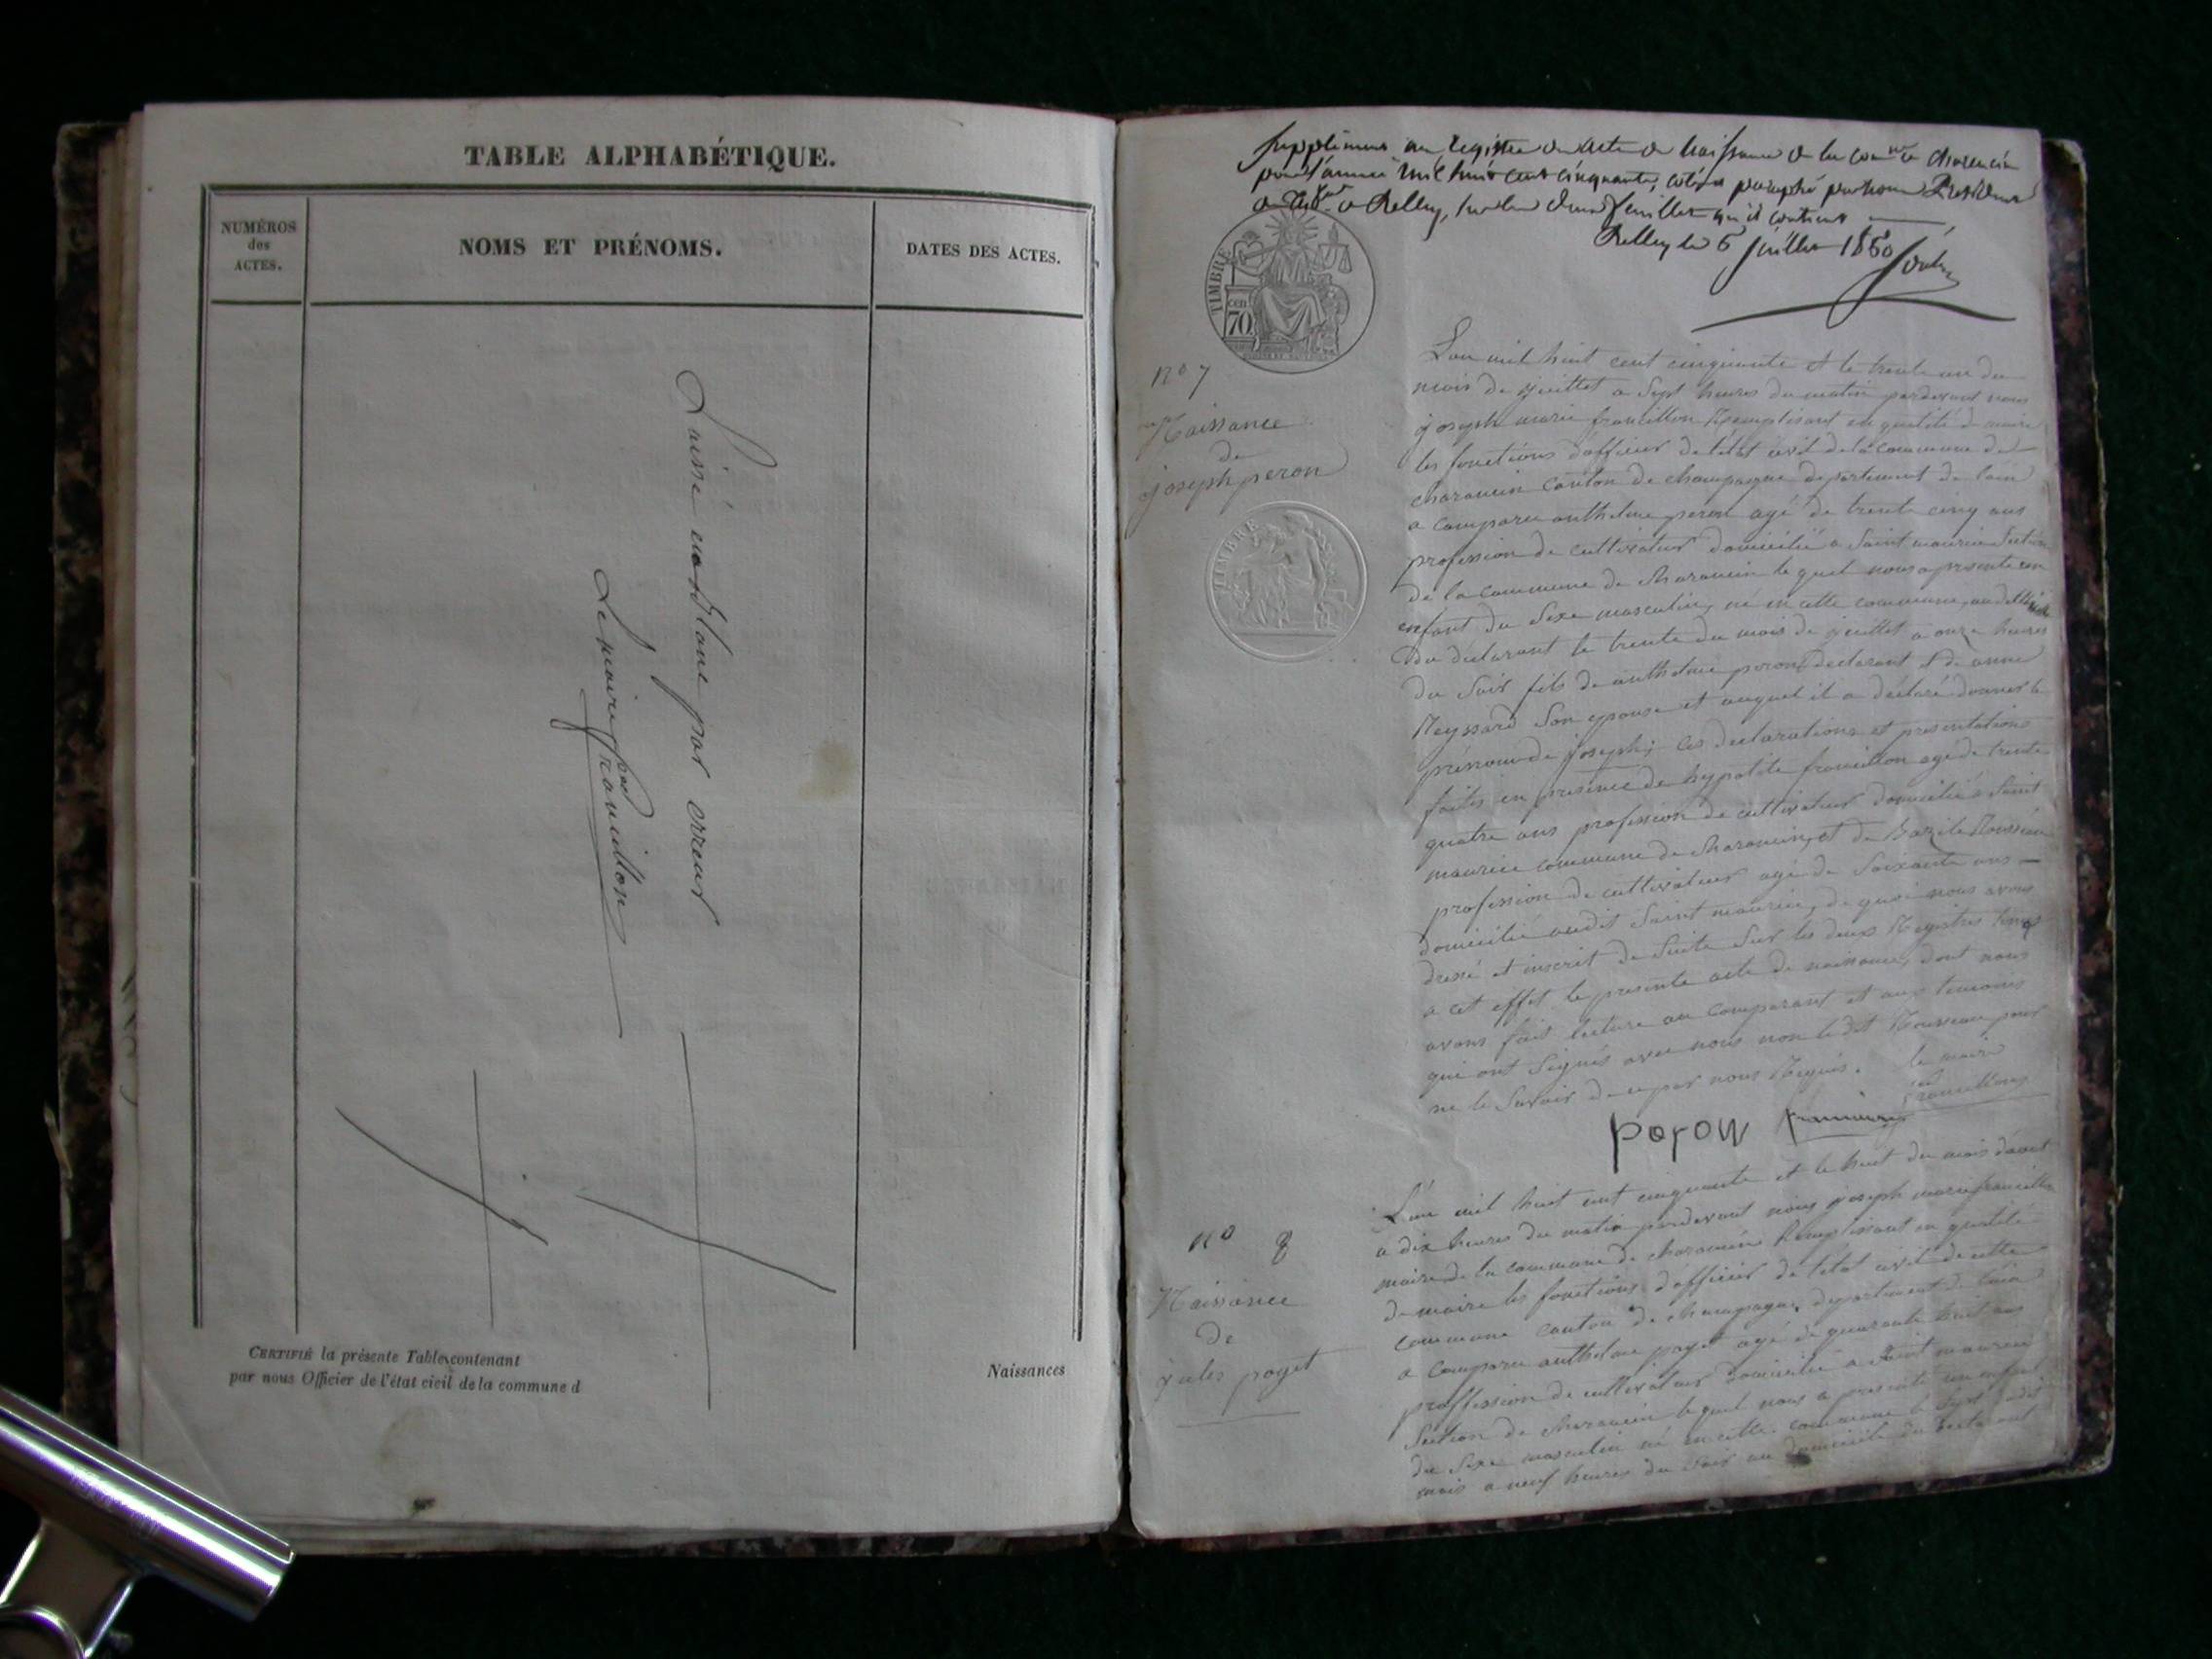 TABLE ALPHABÉTIQUE.
NUMÉROS
des
ACTES.
NOMS ET PRÉNOMS.
DATES DES ACTES.
Laissé en blanc par erreur
Le maire francillon
CERTIFIÉ la présente Table contenant
par nous Officier de l'état civil de la commune d
Naissances
Supplément au registre des actes de naissance de la comne de charancin
pour l'année mil huit cent cinquante, coté et paraphé par nous Président
à Belley, feuillets qu'il contient
Belley le 6 juillet 1850
TIMBRE
cen
70
TIMBRE
no 7
Naissance
de
joseph peron
L'an mil huit cent cinquante et le trente un du
mois de juillet a Sept heures du matin pardevant nous
joseph marie francillon Remplisant en qualité de maire
les fonctions d'afficier de létat civil de la commune de
charancin canton de champagne departement de l'ain
a comparu anthelme peron agé de trente cinq ans
profession de cultivateur domicilié a Saint maurice Section
de la commune de Charancin le quel nous a presenté un
enfant du Sexe masculin, né en cette commune, au domicile
du declarant le trente du mois de juillet a onze heures
du Soir fils de anthelme peron declarant et de anne
Reyssard Son epouse et auquel il a déclaré donner le
prénom de joseph; ces declarations et presentations
faites en presence de hypolite francillon agé de trente
quatre ans profession de cultivateur domicilié a Saint
maurice commune de Charancin, et de Bazile Rousseau
profession de cultivateur agé de Soixante ans
domicilié audit Saint maurice, de quoi nous avons
dressé et inscrit de Suite Sur les deux Registres tenus
a cet effet le presente acte de naissance, dont nous
avons fait lecture au comparant et aux temoins
qui ont Signés avec nous non le dit Rousseau pour
ne le Savoir de ce par nous Requis. le maire
francillon
peron francillon
no 8
Naissance
de
jules proget
L'an mil huit cent cinquante et le huit du mois daout
a dix heures du matin pardevant nous joseph marie francillon
maire de la commune de charancin Remplissant en qualité
de maire les fonctions d'officier de l'état civil de cette
commune canton de champagne, departement de l'ain
a comparu anthelme proget agé de quarante huit ans
proffession de cultivateur domicilié a Saint maurice
Section de charancin le quel nous a presenté un enfant
du Sexe masculin né en cette commune le Sept dudit
mois a neuf heures du Soir au domicile du declarant